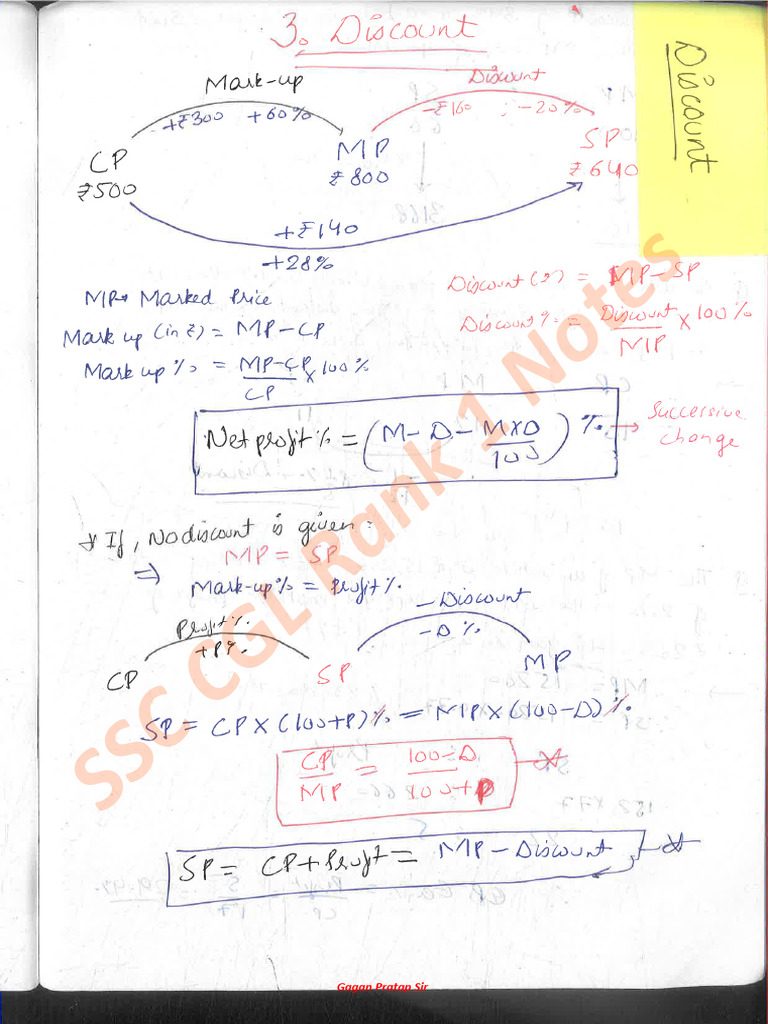 3. Discount
Discount
Mark-up
Discount
+₹300 +60%
-₹160 ; -20%
CP
₹500
MP
₹800
SP
₹640
+₹140
+28%
MP→ Marked Price
Mark up (in ₹) = MP-CP
Mark up % = MP-CP/CP × 100%
Discount (₹) = MP-SP
Discount % = Discount/MP × 100%
Net profit % = (M - D - M×D/100) %. → Successive change
* If, No discount is given:
MP = SP
⇒ Mark-up% = Profit %.
Profit %
+P%.
-Discount
-D %.
CP
SP
MP
SP = CP × (100+P)% = MP × (100-D)%.
CP/MP = 100-D/100+P
SP = CP + Profit = MP - Discount
SSC CGL Rank 1 Notes
Gagan Pratap Sir